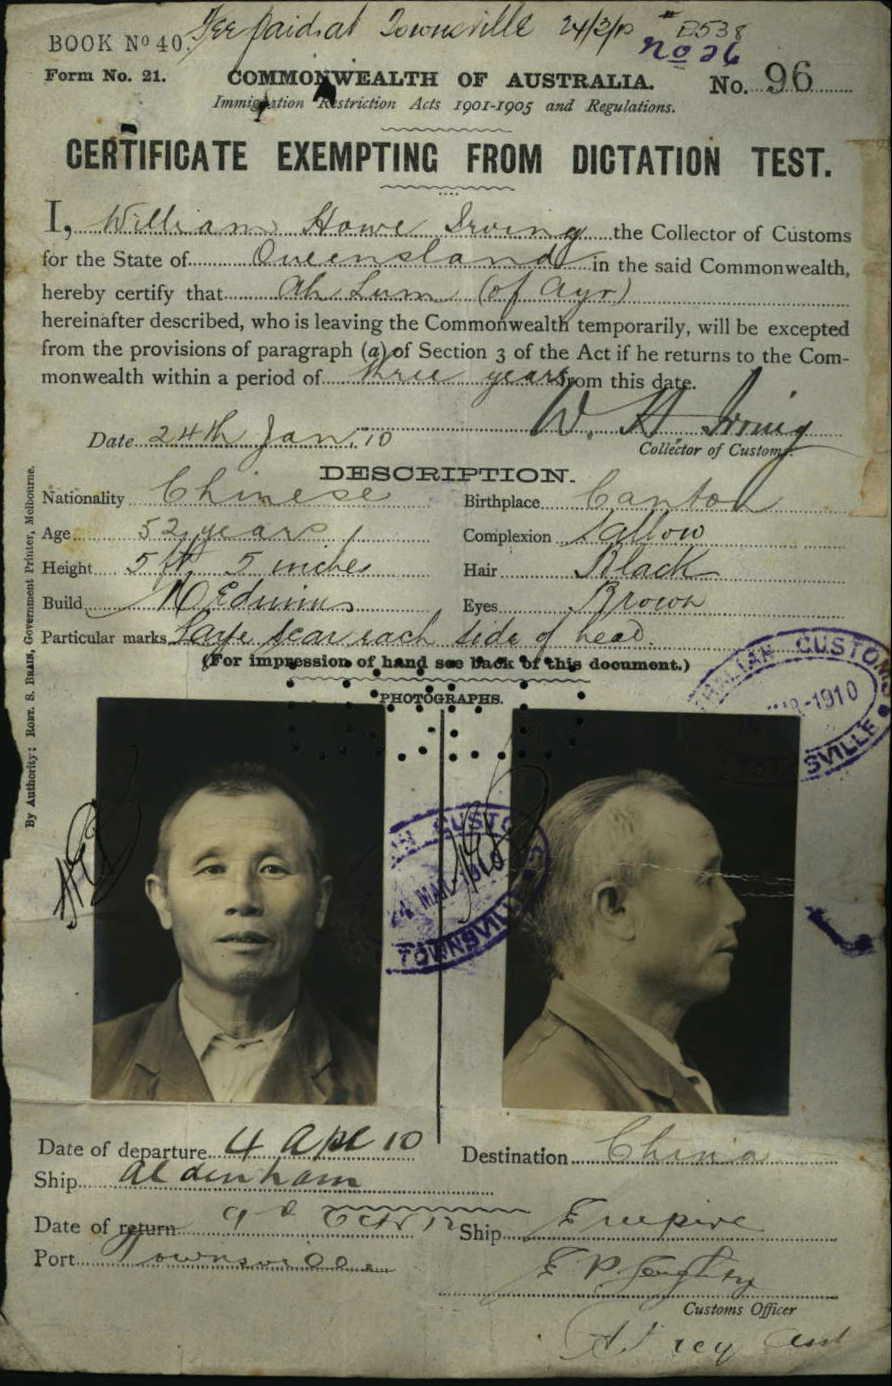 Fee paid at Townsville 24/3/10 B538
BOOK Nº 40. Nº 26
Form No. 21. COMMONWEALTH OF AUSTRALIA. No. 96
Immigration Restriction Acts 1901-1905 and Regulations.
CERTIFICATE EXEMPTING FROM DICTATION TEST.
I, William Howe Irving the Collector of Customs
for the State of Queensland in the said Commonwealth,
hereby certify that Ah Lum (of Ayr)
hereinafter described, who is leaving the Commonwealth temporarily, will be excepted
from the provisions of paragraph (a) of Section 3 of the Act if he returns to the Com-
monwealth within a period of three years from this date.
W. H. Irving
Date 24th Jan. 10
Collector of Customs
DESCRIPTION.
Nationality Chinese Birthplace Canton
Age 52 years Complexion Sallow
Height 5 ft 5 inches Hair Black
Build Medium Eyes Brown
Particular marks Large scar each side of head.
(For impression of hand see back of this document.)
PHOTOGRAPHS.
By Authority: ROBT. S. BRAIN, Government Printer, Melbourne.
-1910
24 MAR 1910
TOWNSVILLE
Date of departure 4 Apl 10 Destination China
Ship Aldenham
Date of return 9th Octr 12 Ship Empire
Port Townsville
Customs Officer